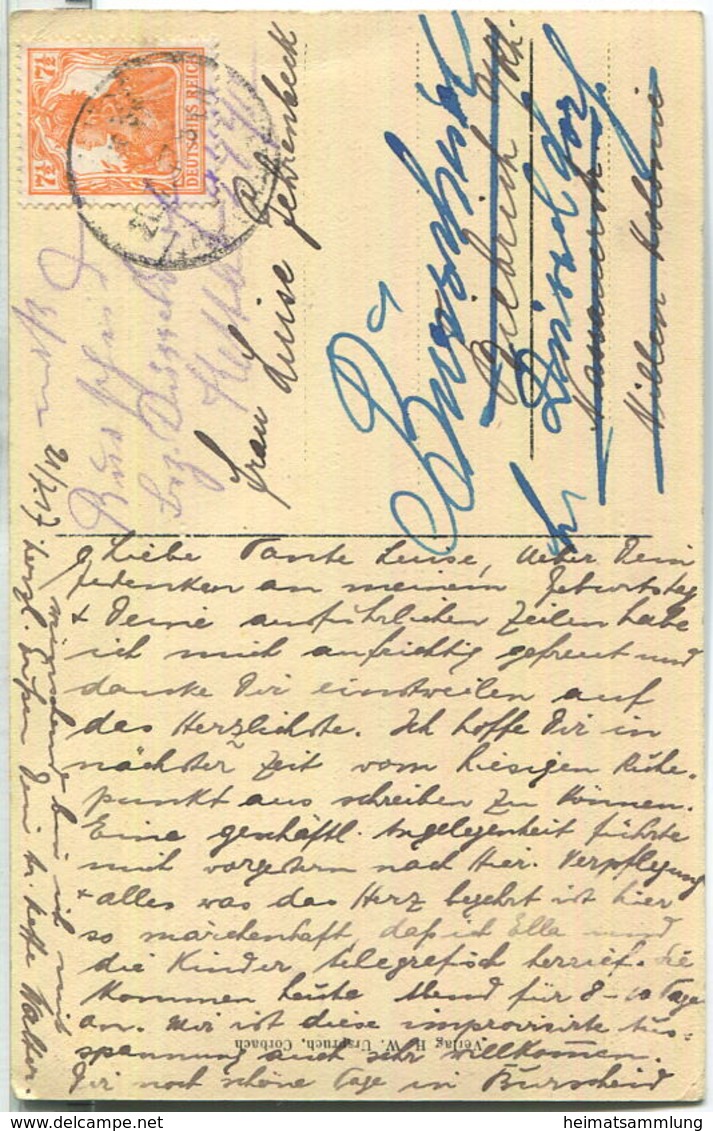 7½ DEUTSCHES REICH 7½
Frau Luise Fehrenbeck
Burscheid
Biebrich a/Rh.
Düsseldorf
Nassauerstr.
Villen Kolonie
Burscheid
Bez. Düsseld
21/7.17
Liebe Tante Luise, Ueber Dein
Gedenken an meinem Geburtstag
+ Deine ausführlichen Zeilen habe
ich mich aufrichtig gefreut und
danke Dir einstweilen auf
das Herzlichste. Ich hoffe Dir in
nächster Zeit vom hiesigen Ruhe-
punkt aus schreiben zu können.
Eine geschäftl. Angelegenheit führte
mich vorgestern nach hier. Verpflegung
+ alles was das Herz begehrt ist hier
so märchenhaft, daß ich Ella und
die Kinder telegrafisch herrief. Sie
kommen heute Abend für 8-10 Tage
an. Mir ist diese improvisirte Aus-
spannung auch sehr willkommen.
Dir noch schöne Tage in Burscheid
wünschend bin ich mit
herzl. Grüßen Dein tr. Neffe Walther.
Verlag H. W. Urspruch, Corbach
heimatsammlung